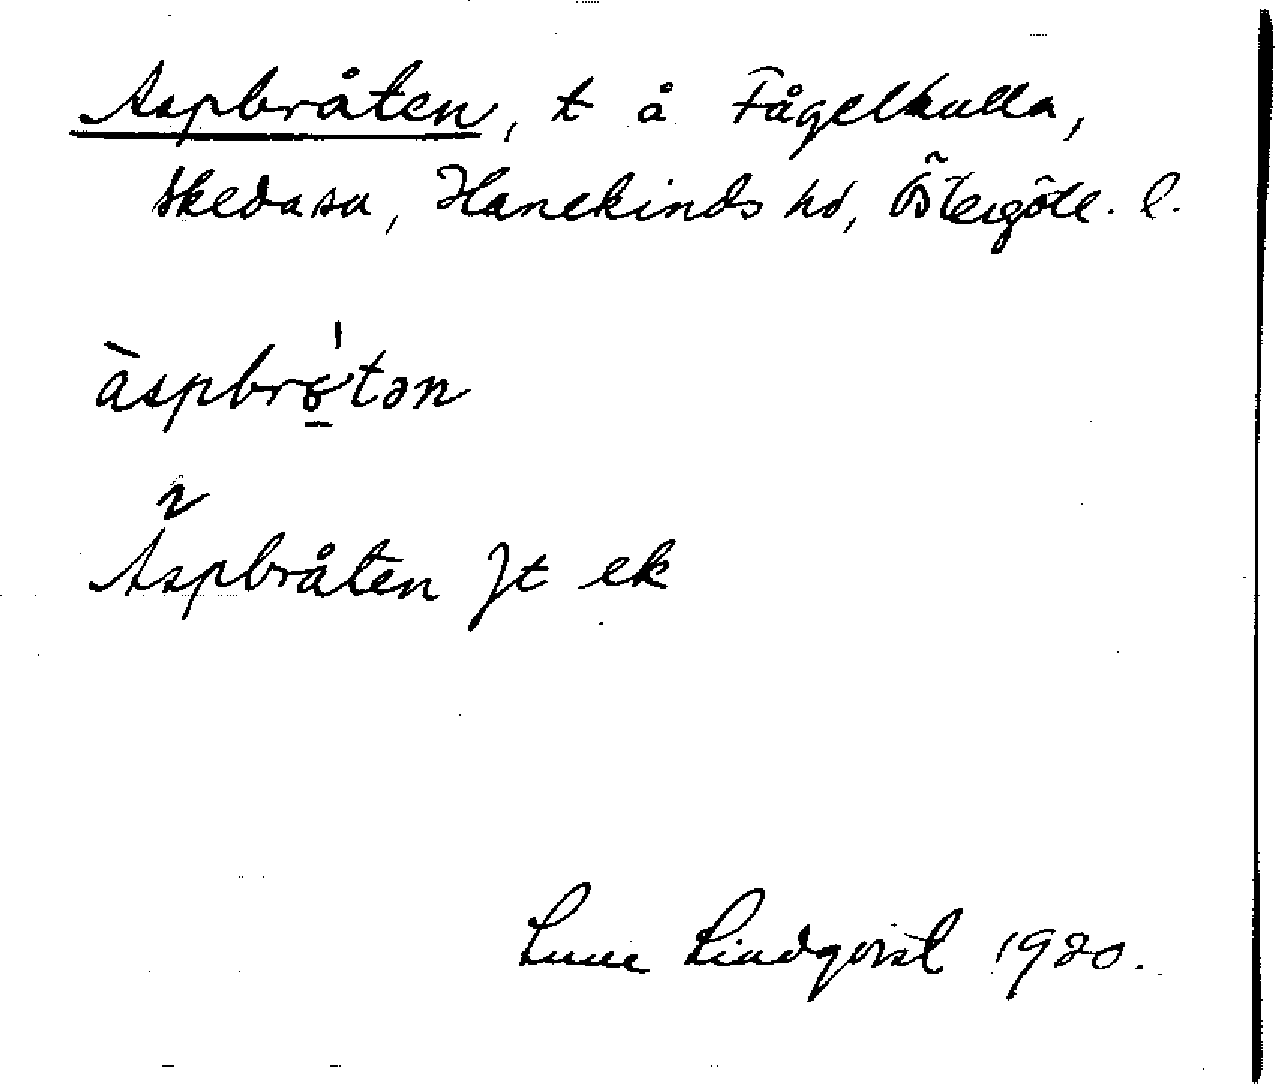 Aspbråten, t å Fågelkulla,
Skedasa, Hanekinds hd, Östergötl. l.
àspbrọ̵̄́tən
Aspbråten Jt ek
Sune Lindqvist 1920.